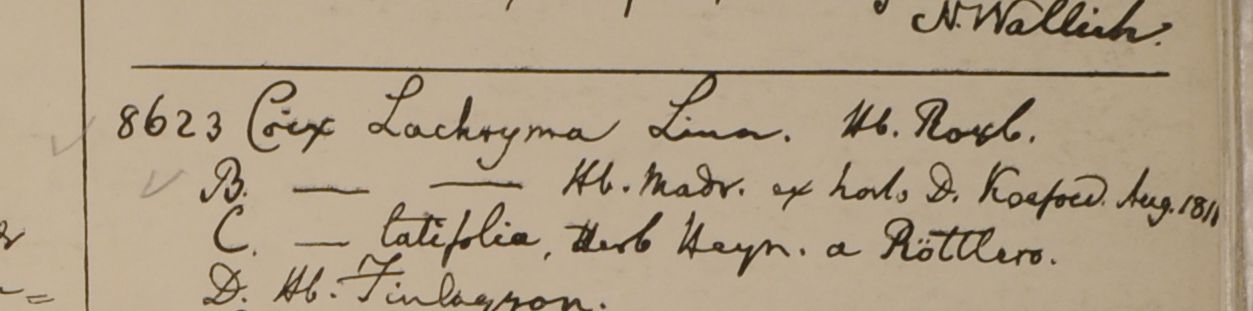 N. Wallich.
8623 Coix Lachryma Linn. Hb. Roxb.
B. — — Hb. Madr. ex horto D. Koefoed. Aug. 181
C. — latifolia, Herb Heyn. a Röttlero.
D. Hb. Finlayson.